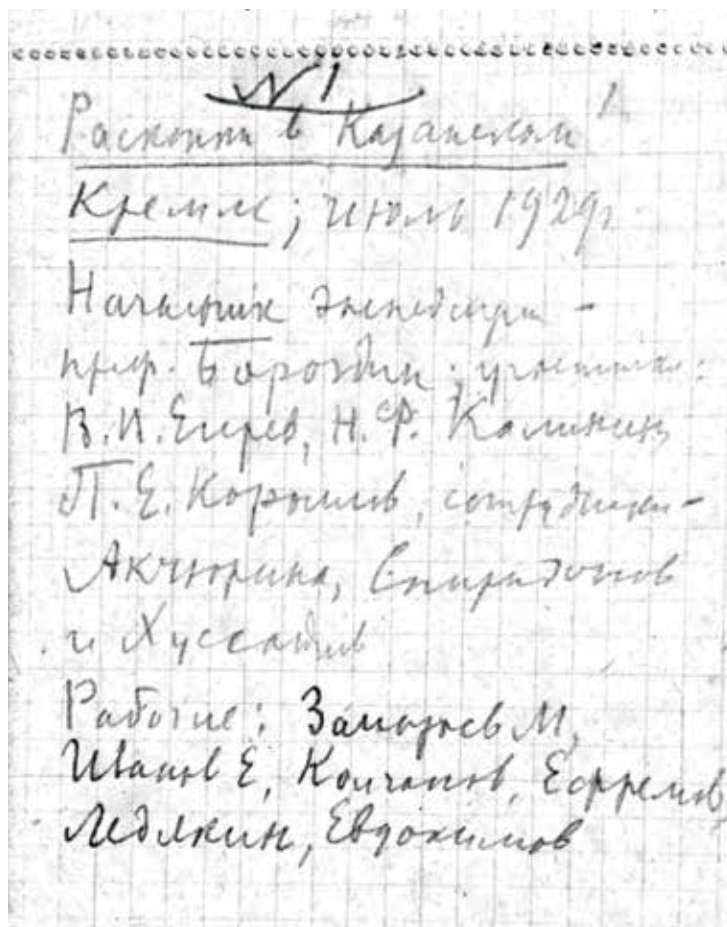 N 1
Раскопки в Казанском 1.
Кремле; июль 1929г.
Начальник экспедиции -
проф. Бороздин; участники:
В.И. Егерев, Н.Ф. Калинин,
П.Е. Корнилов, сотрудники -
Акчюрина, Спиридонов
и Хуссаинов
Рабочие: М,
Иванов Е, Колчанов, Ефремов
Ледякин, Евдокимов